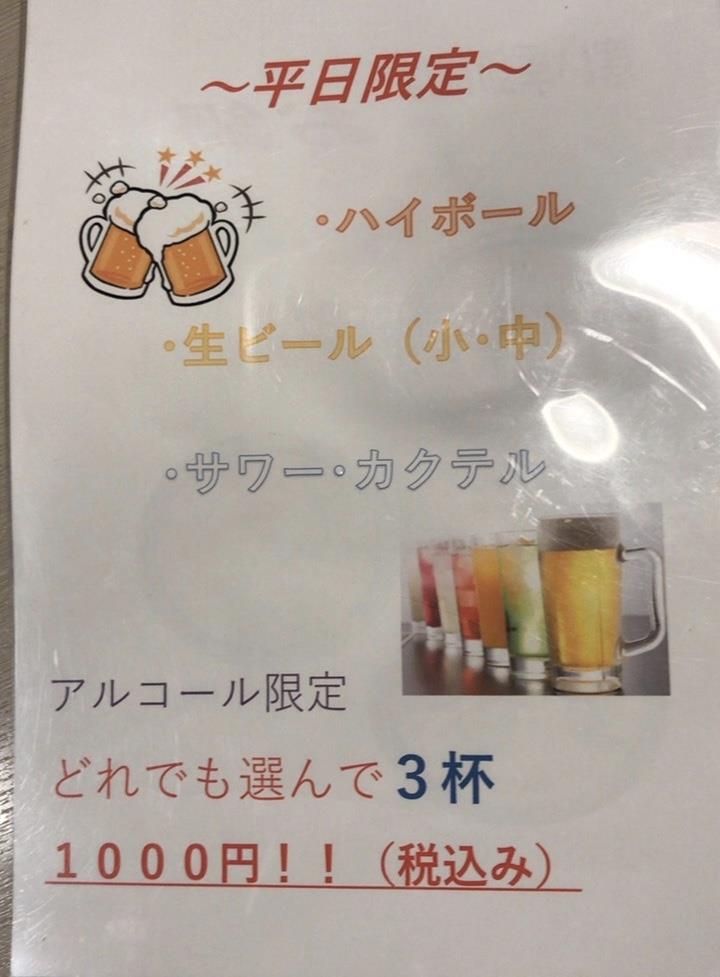 ～平日限定～
・ハイボール
・生ビール（小・中）
・サワー・カクテル
アルコール限定
どれでも選んで３杯
１０００円！！（税込み）